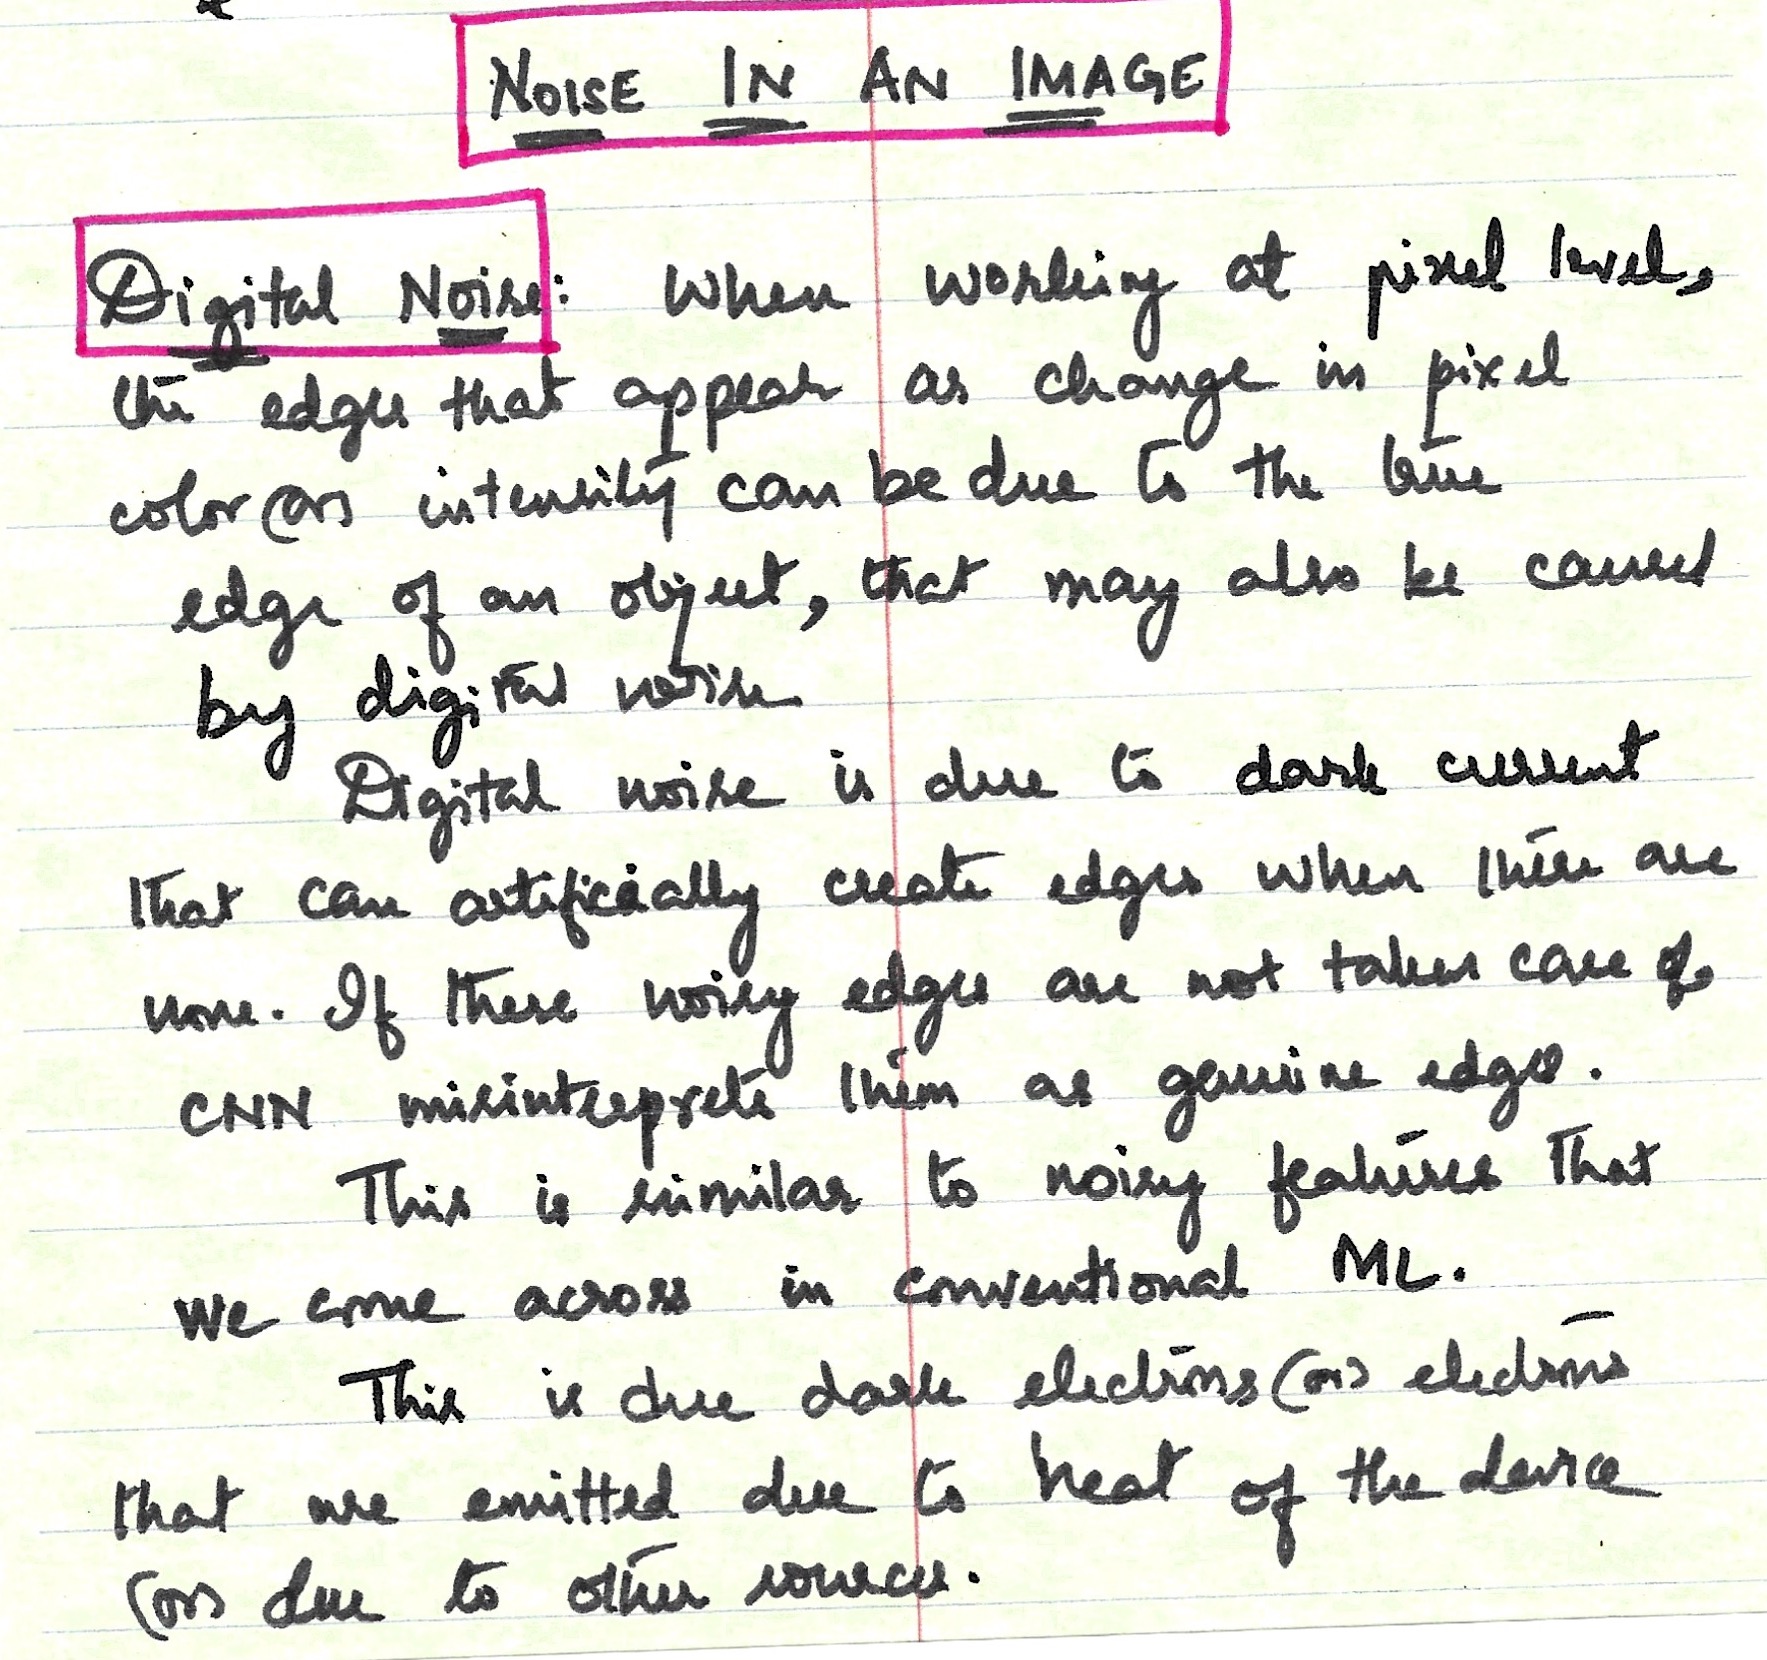 NOISE IN AN IMAGE
Digital Noise: When working at pixel level,
the edges that appear as change in pixel
color (or) intensity can be due to the true
edge of an object, that may also be caused
by digital noise
Digital noise is due to dark current
that can artificially create edges when there are
none. If these noisy edges are not taken care of,
CNN misinterprets them as genuine edges.
This is similar to noisy features that
we come across in conventional ML.
This is due dark electrons (or) electrons
that are emitted due to heat of the device
(or) due to other sources.